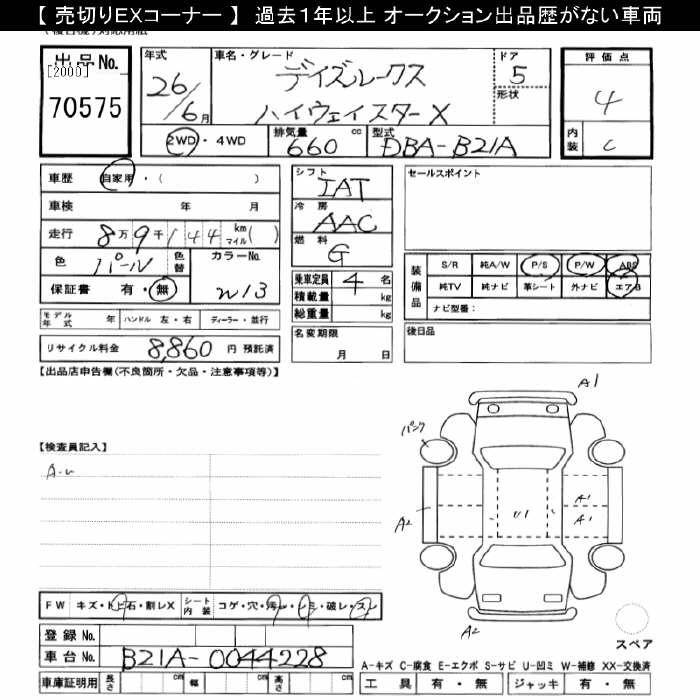 【 売切りEXコーナー 】 過去1年以上 オークション出品歴がない車両
出品No.
[2000]
70575
年式
26/6月
車名・グレード
デイズルークス
ハイウェイスターX
ドア
5
形状
評価点
4
内装
C
2WD・4WD
排気量
660 cc
型式
DBA-B21A
車歴 自家用・( )
車検 年 月
走行 8万9千144 km マイル( )
色 パール 色替
カラーNo.
W13
保証書 有・無
モデル年式 年 ハンドル 左・右 ディーラー・並行
リサイクル料金 8,860 円 預託済
シフト
IAT
冷房
AAC
燃料
G
乗車定員 4 名
積載量 kg
総重量 kg
名変期限
月 日
セールスポイント
装備品
S/R 純A/W P/S P/W ABS
純TV 純ナビ 革シート 外ナビ エアB
ナビ型番:
後日品
【出品店申告欄(不良箇所・欠品・注意事項等)】
【検査員記入】
A1
パンク
A2
A1
A1
A2
スペア
FW キズ・トビ石・割レX シート内装 コゲ・穴・汚レ・シミ・破レ・スレ
登録No.
車台No. B21A-0044228
車庫証明用 長さ cm 幅 cm 高さ cm
A-キズ C-腐食 E-エクボ S-サビ U-凹ミ W-補修 XX-交換済
工具 有・無 ジャッキ 有・無